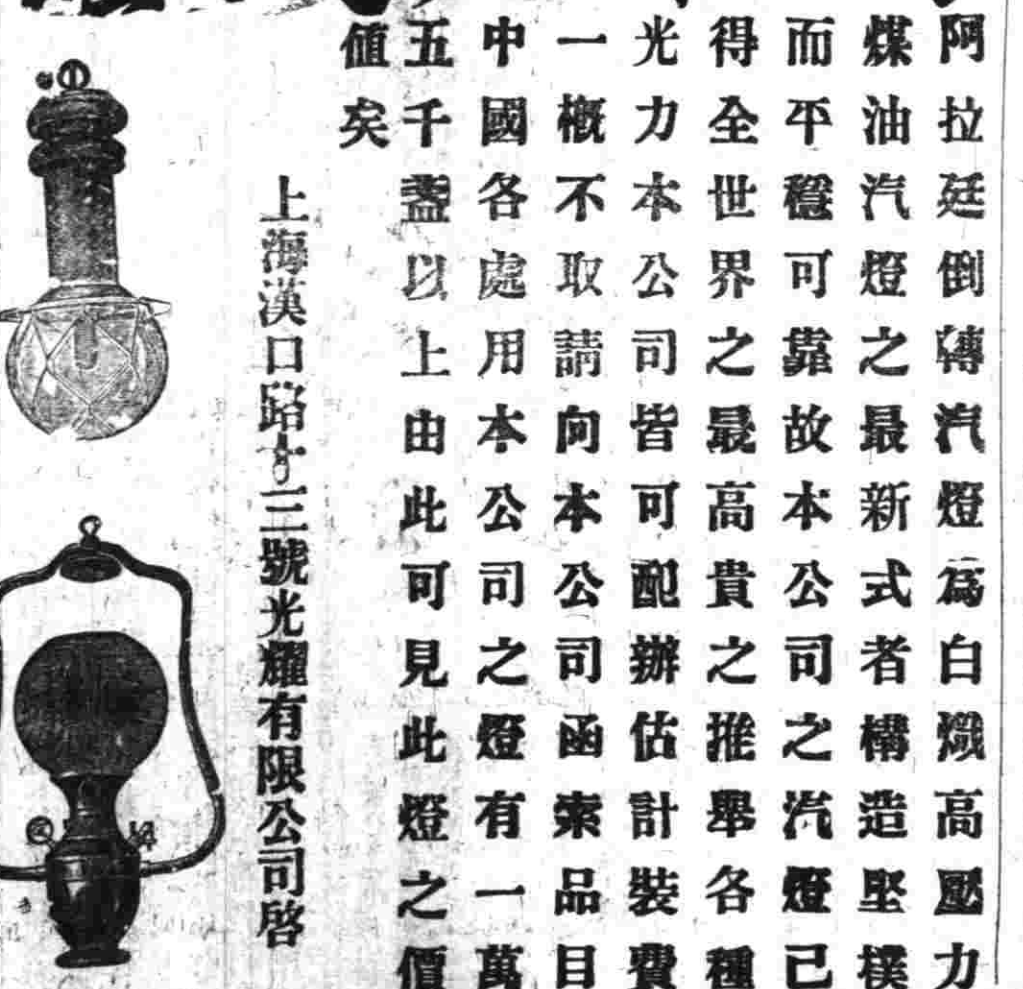 阿拉廷倒轉汽燈為白熾高壓力
煤油汽燈之最新式者構造堅樸
而平穩可靠故本公司之汽燈已
得全世界之最高貴之推舉各種
光力本公司皆可配辦估計裝費
一概不取請向本公司函索品目
中國各處用本公司之燈有一萬
五千盞以上由此可見此燈之價
值矣
上海漢口路十三號光耀有限公司啓